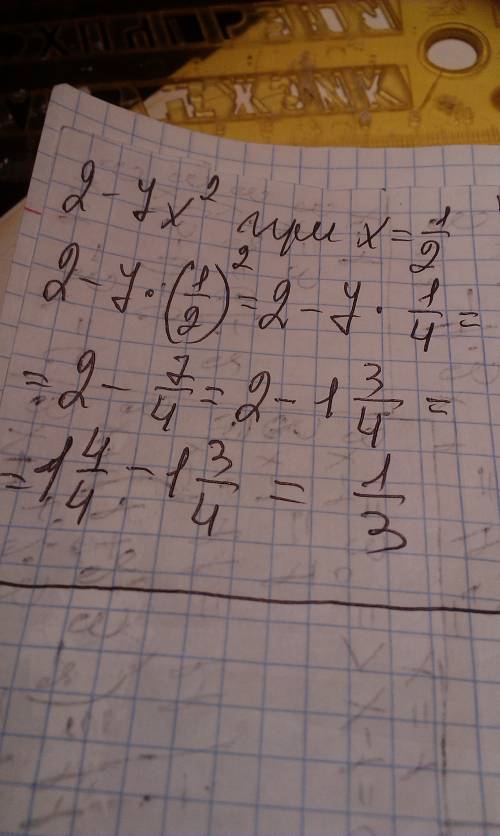 2 - 7x² при x = 1/2
2 - 7 · (1/2)² = 2 - 7 · 1/4 =
= 2 - 7/4 = 2 - 1 3/4 =
= 1 4/4 - 1 3/4 = 1/3